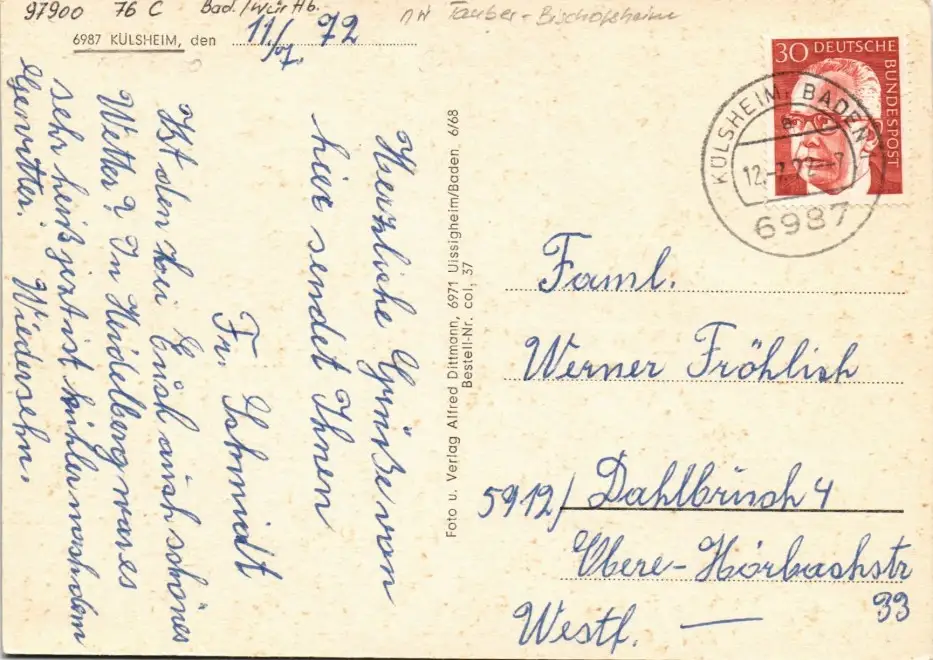 97900 76 C Bad./Württb. nn Tauber-Bischofsheim
6987 KÜLSHEIM, den 11./7. 72
Herzliche Grüße von
hier sendet Ihnen
Fr. Schmidt
Ist den bei Euch auch schönes
Wetter? In Heidelberg war es
sehr heiß jetzt ist kühler nach dem
Gewitter. Wiedersehn.
Foto u. Verlag Alfred Dittmann, 6971 Uissigheim/Baden. 6/68
Bestell-Nr. col, 37
30 DEUTSCHE
BUNDESPOST
KÜLSHEIM, BADEN
a
12.-7.72-7
6987
Faml.
Werner Fröhlich
5912/ Dahlbruch 4
Obere-Hörbachstr
33
Westf. —